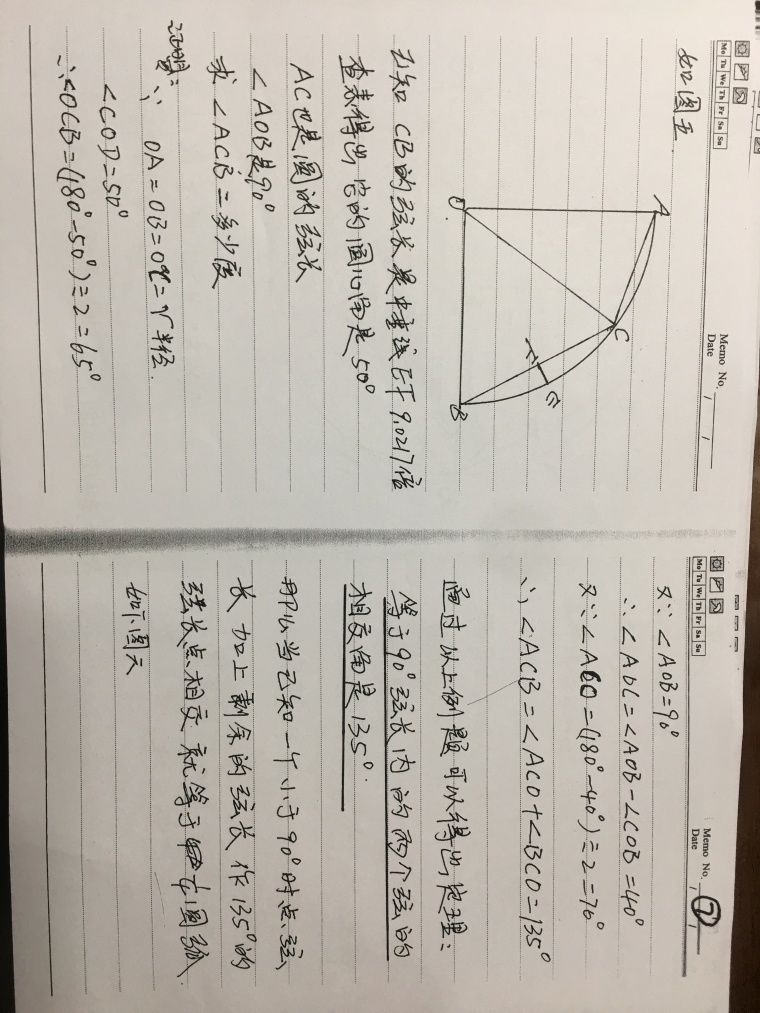 Memo No.
Date / /
Mo Tu We Th Fr Sa Su
如图五
A
C
E
F
O
B
已知 CB的弦长是中垂线EF 9.0217倍
查表得出它的圆心角是50°
AC也是圆的弦长
∠AOB是90°
求∠ACB=多少度
证明:∵OA=OB=OC=r半径
∠COD=50°
∴∠OCB=(180°-50°)÷2=65°
Memo No.
Date / /
7
Mo Tu We Th Fr Sa Su
又∵∠AOB=90°
∴∠AOC=∠AOB-∠COB=40°
又∵∠ACO=(180°-40°)÷2=70°
∴∠ACB=∠ACO+∠BCO=135°
通过以上例题可以得出定理:
等于90°弦长内的两个弦的
相交角是135°.
那么当已知一个小于90°时点弦
长加上剩余的弦长作135°的
弦长点相交就等于四分圆弧.
如下图六